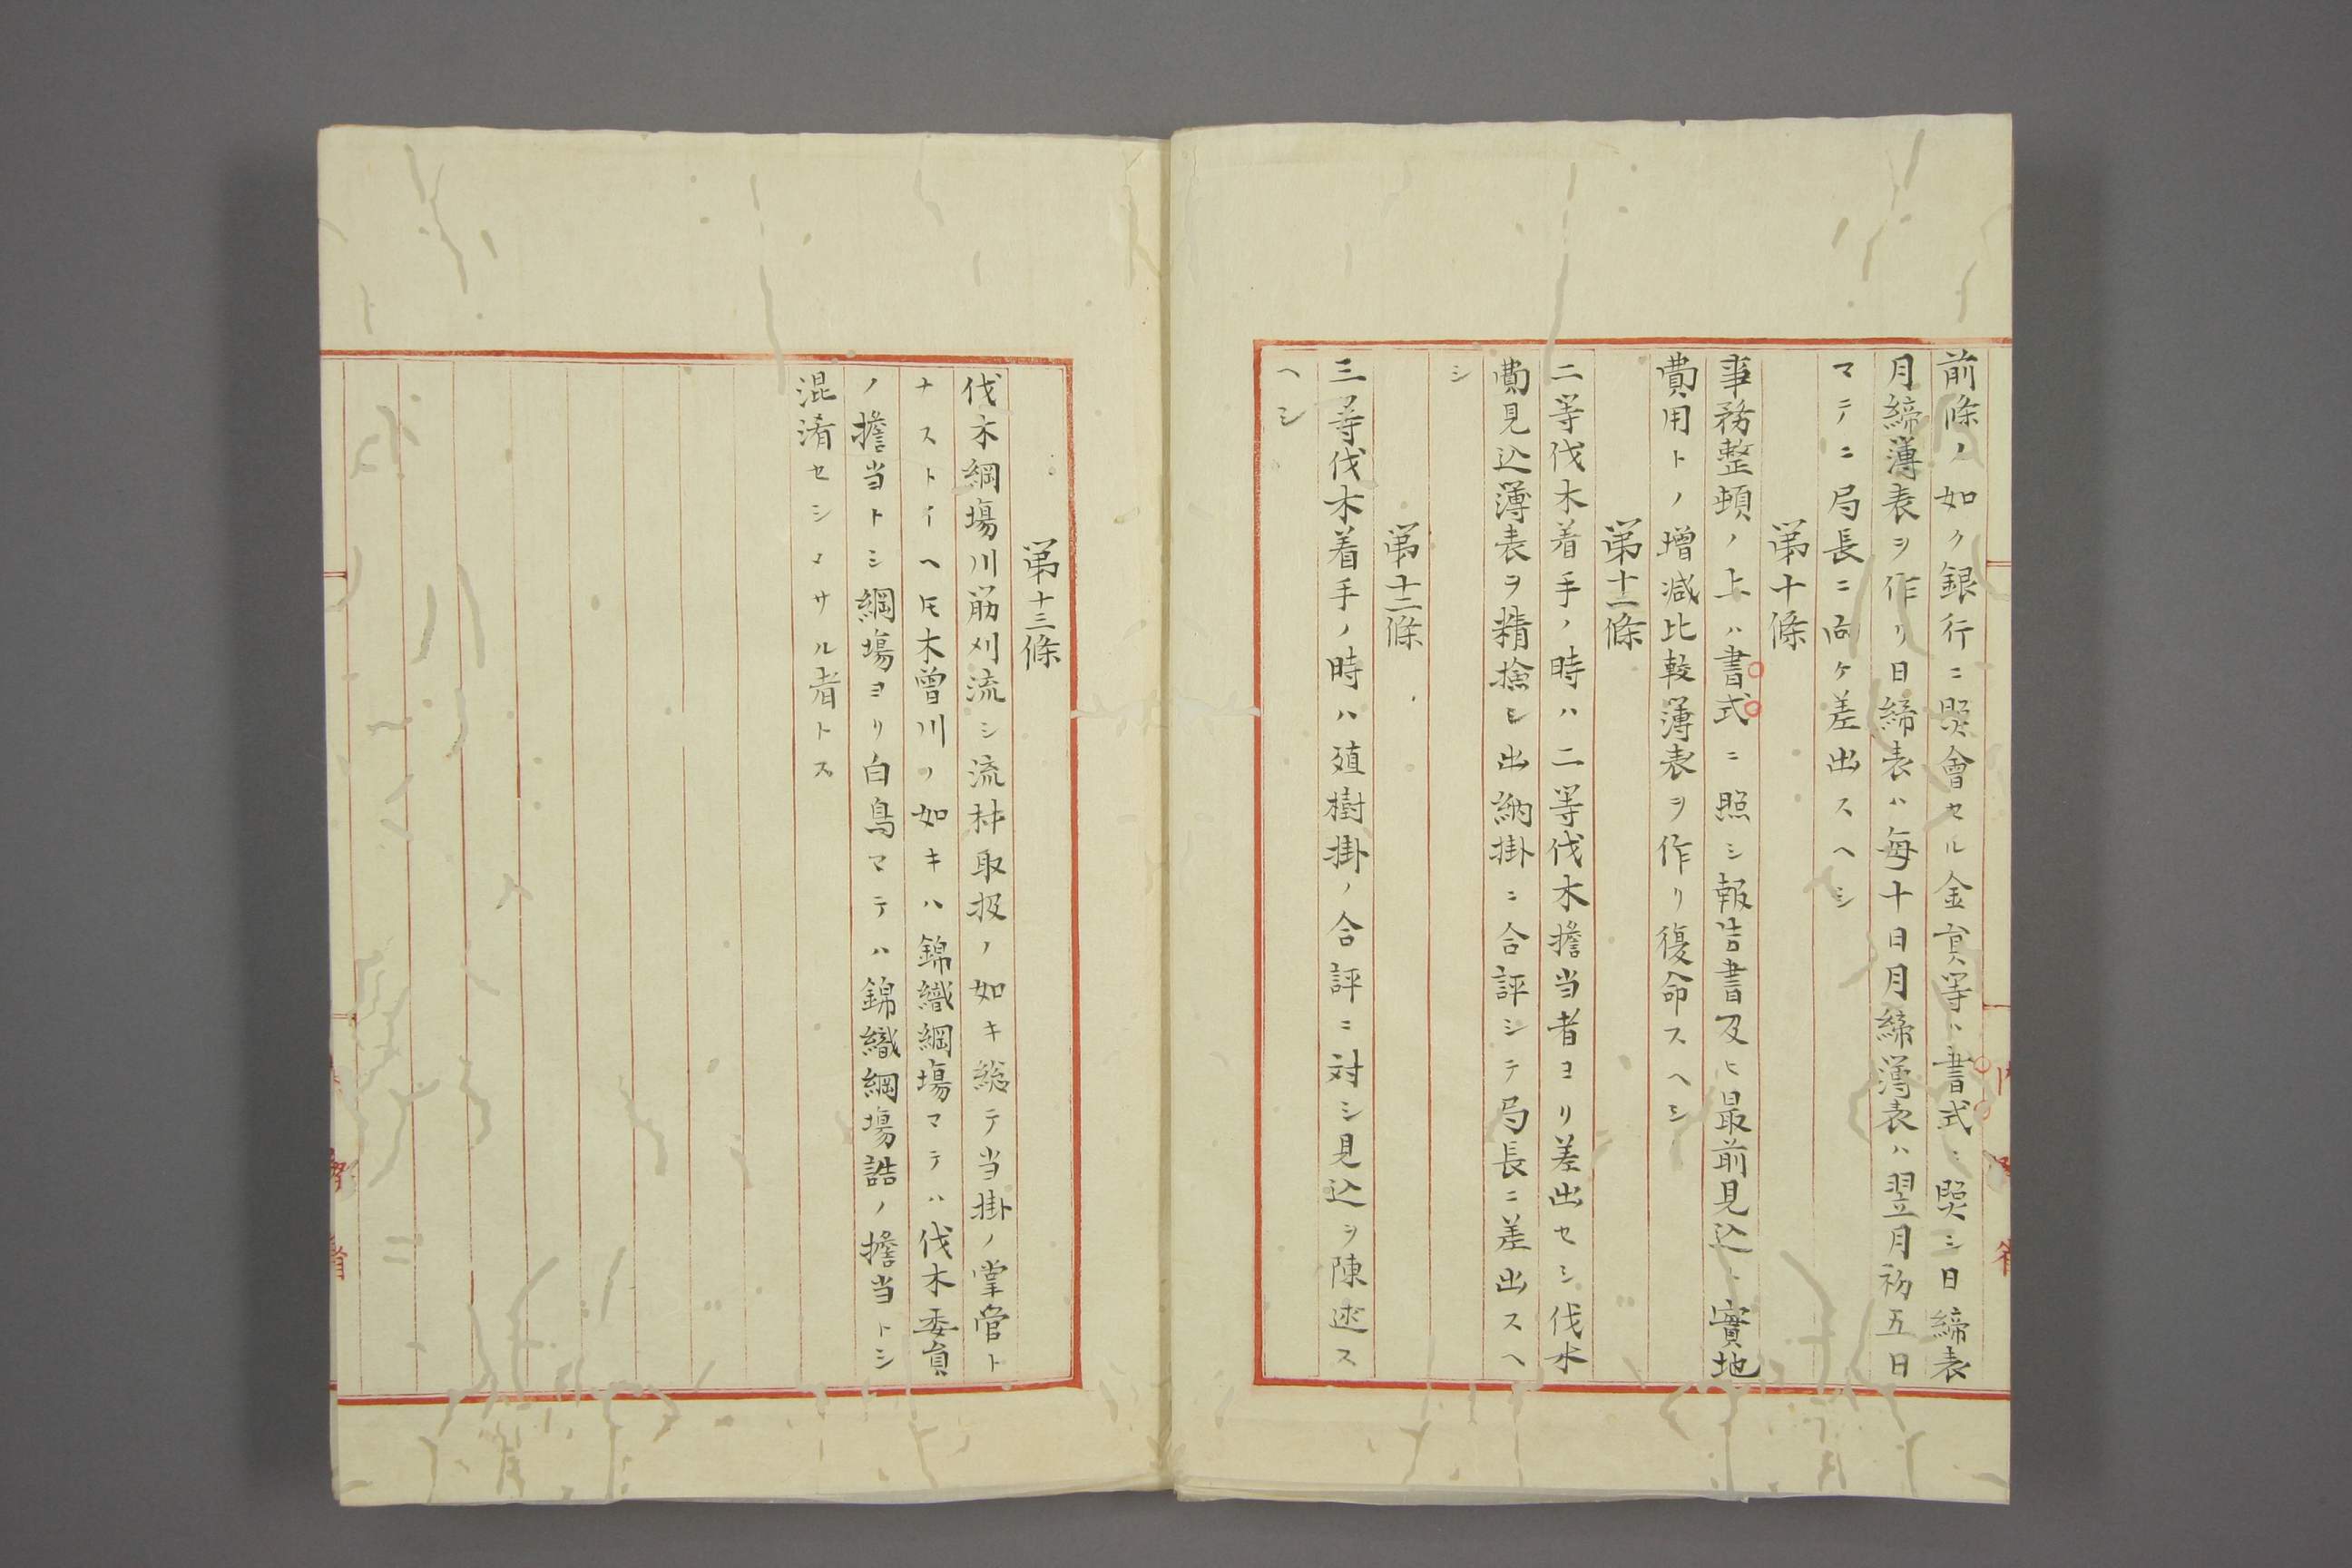 前條ノ如ク銀行ニ照會セル金員等ハ書式ニ照シ日締表
月締簿表ヲ作リ日締表ハ毎十日月締簿表ハ翌月初五日
マテニ局長ニ向ケ差出スヘシ
第十條
事務整頓ノ上ハ書式ニ照シ報告書及ヒ最前見込ト實地
費用トノ增減比較簿表ヲ作リ復命スヘシ
第十一條
二等伐木着手ノ時ハ二等伐木擔当者ヨリ差出セシ伐木
費見込簿表ヲ精撿シ出納掛ニ合評シテ局長ニ差出スヘ
シ
第十二條
三等伐木着手ノ時ハ殖樹掛ノ合評ニ対シ見込ヲ陳述ス
ヘシ
第十三條
伐木綱塲川筋刈流シ流材取扱ノ如キ総テ当掛ノ掌管ト
ナストイヘ𪜈木曽川ノ如キハ錦織綱塲マテハ伐木委員
ノ擔当トシ綱塲ヨリ白鳥マテハ錦織綱塲詰ノ擔当トシ
混淆セシマサル者トス